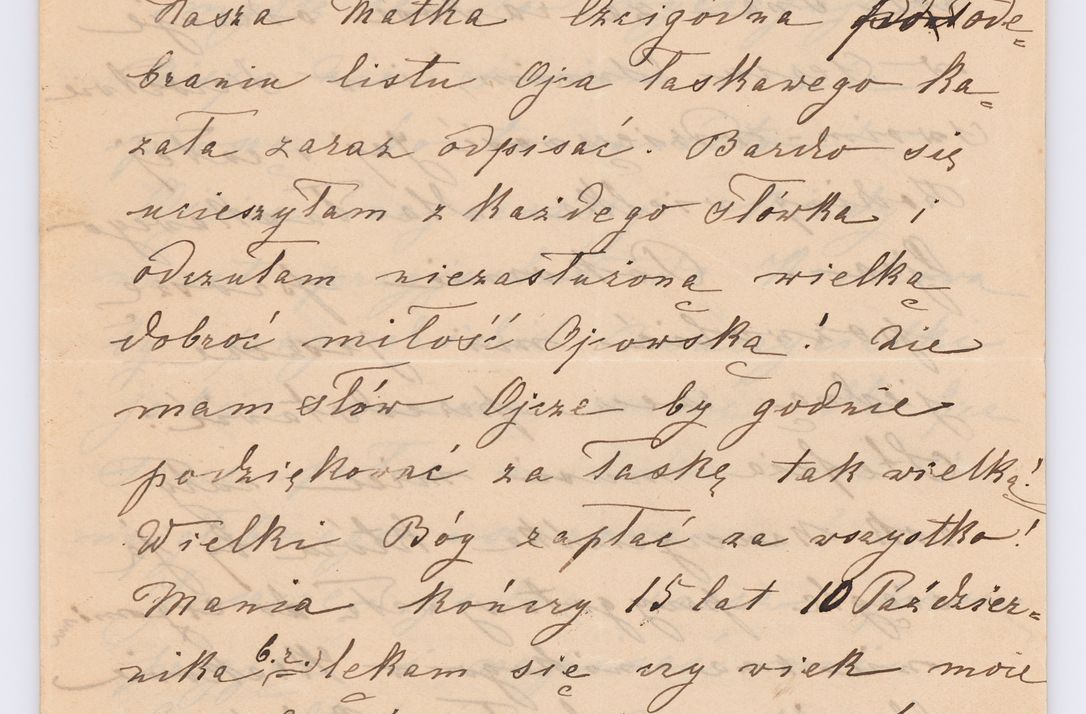 Nasza Matka Czcigodna po ode=
braniu listu Ojca łaskawego ka=
zała zaraz odpisać. Bardzo się
ucieszyłam z każdego słówka i
odczułam niezasłużoną wielką
dobroć miłość Ojcowską! Nie
mam słów Ojcze by godnie
podziękować za łaskę tak wielką!
Wielki Bóg zapłać za wszystko!
Mania kończy 15 lat 10 Paździer=
nika b.r.) lękam się czy wiek moie